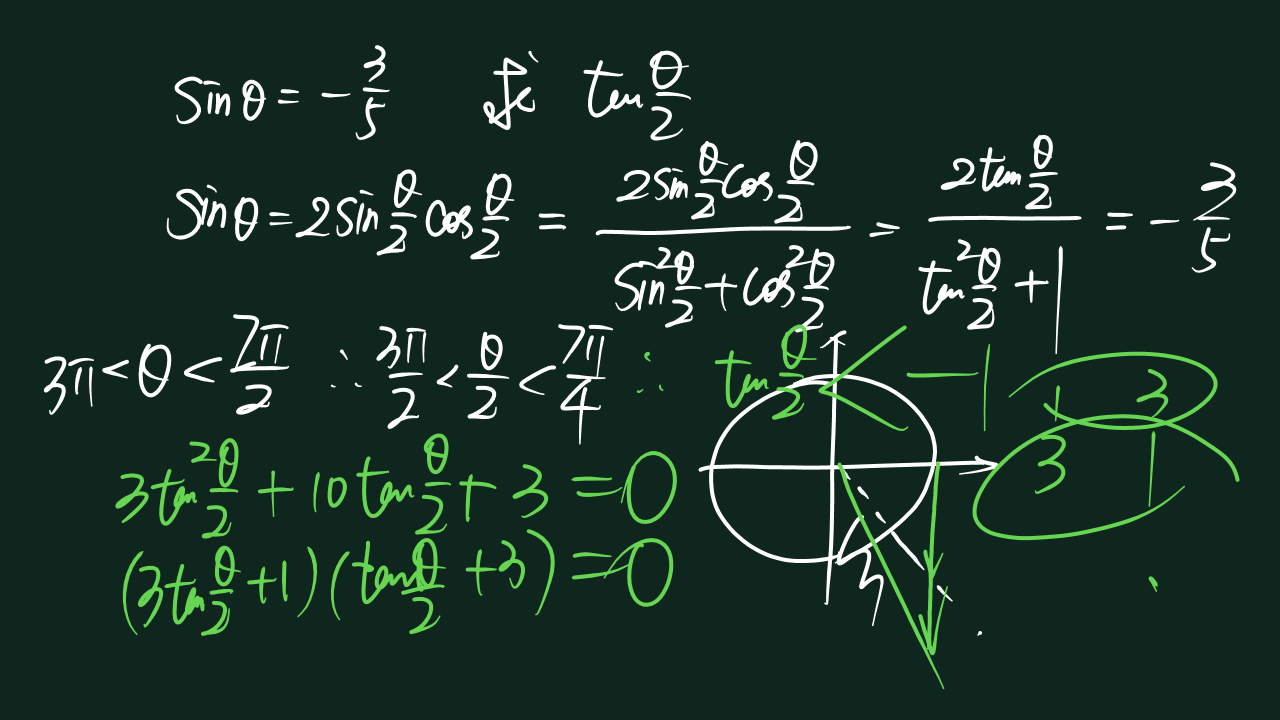 sinθ = -3/5 求 tan θ/2
sinθ = 2sin θ/2 cos θ/2 = (2sin θ/2 cos θ/2)/(sin² θ/2 + cos² θ/2) = (2tan θ/2)/(tan² θ/2 + 1) = -3/5
3π < θ < 7π/2 ∴ 3π/2 < θ/2 < 7π/4 ∴ tan θ/2 < -1
1 3
3 1
3tan² θ/2 + 10tan θ/2 + 3 = 0
(3tan θ/2 + 1)(tan θ/2 + 3) = 0